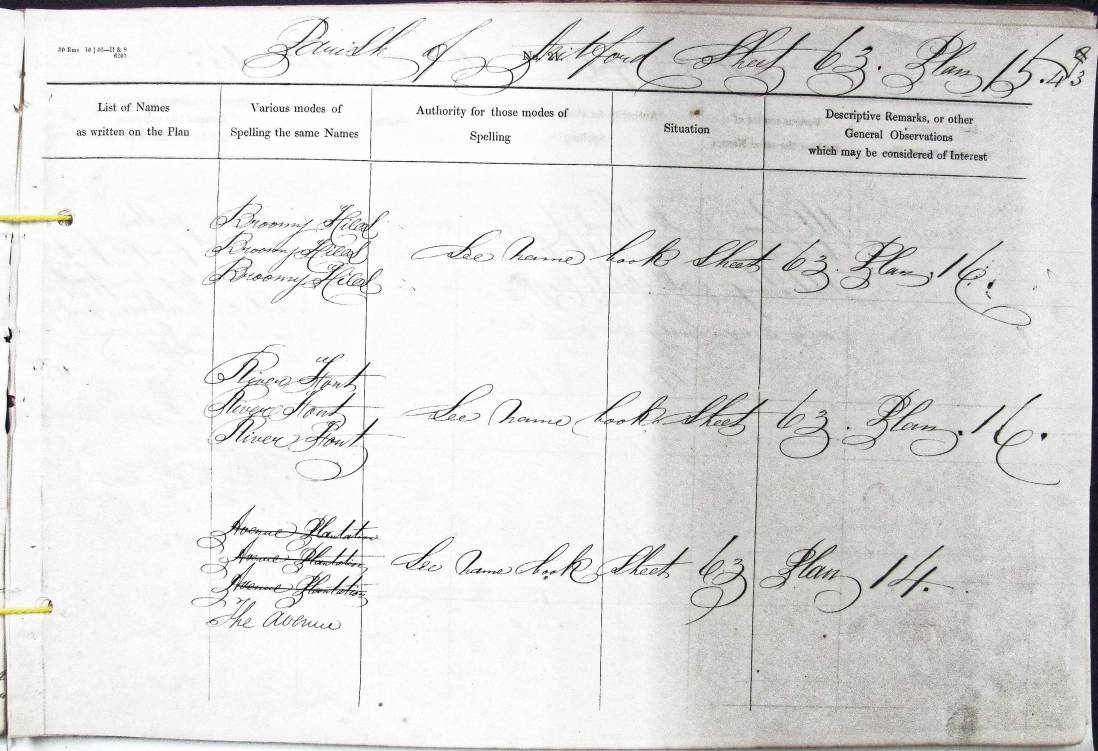 Parish of Mitford Sheet 63. Plan 15.
43
No. 21.
List of Names
as written on the Plan
Various modes of
Spelling the same Names
Authority for those modes of
Spelling
Situation
Descriptive Remarks, or other
General Observations
which may be considered of Interest
Broomy Hiled
Broomy Hiled
Broomy Hiled
See name book Sheet 63. Plan. 16.
River Font
River Font
River Font
See name book Sheet 63. Plan. 16.
Avenue Plantation
Avenue Plantation
Avenue Plantation
The Avenue
See name book Sheet 63 Plan 14.